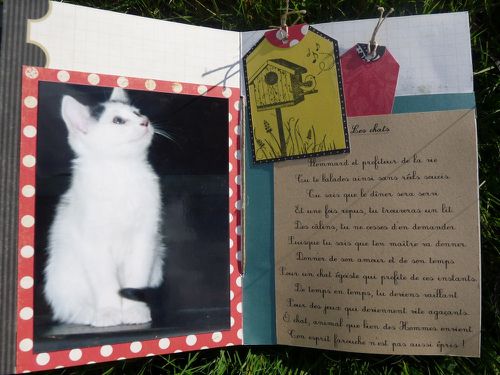 Les chats
Flemmard et profiteur de la vie
Tu te balades ainsi sans réels soucis
Tu sais que le dîner sera servi
Et une fois repus, tu trouveras un lit.
Des câlins, tu ne cesses d'en demander
Puisque tu sais que ton maître va donner
Donner de son amour et de son temps
Pour un chat égoïste qui profite de ces instants.
De temps en temps, tu deviens vaillant
Pour des jeux qui deviennent vite agaçants.
Ô chat, animal que bien des Hommes envient
Ton esprit farouche n'est pas aussi épris !